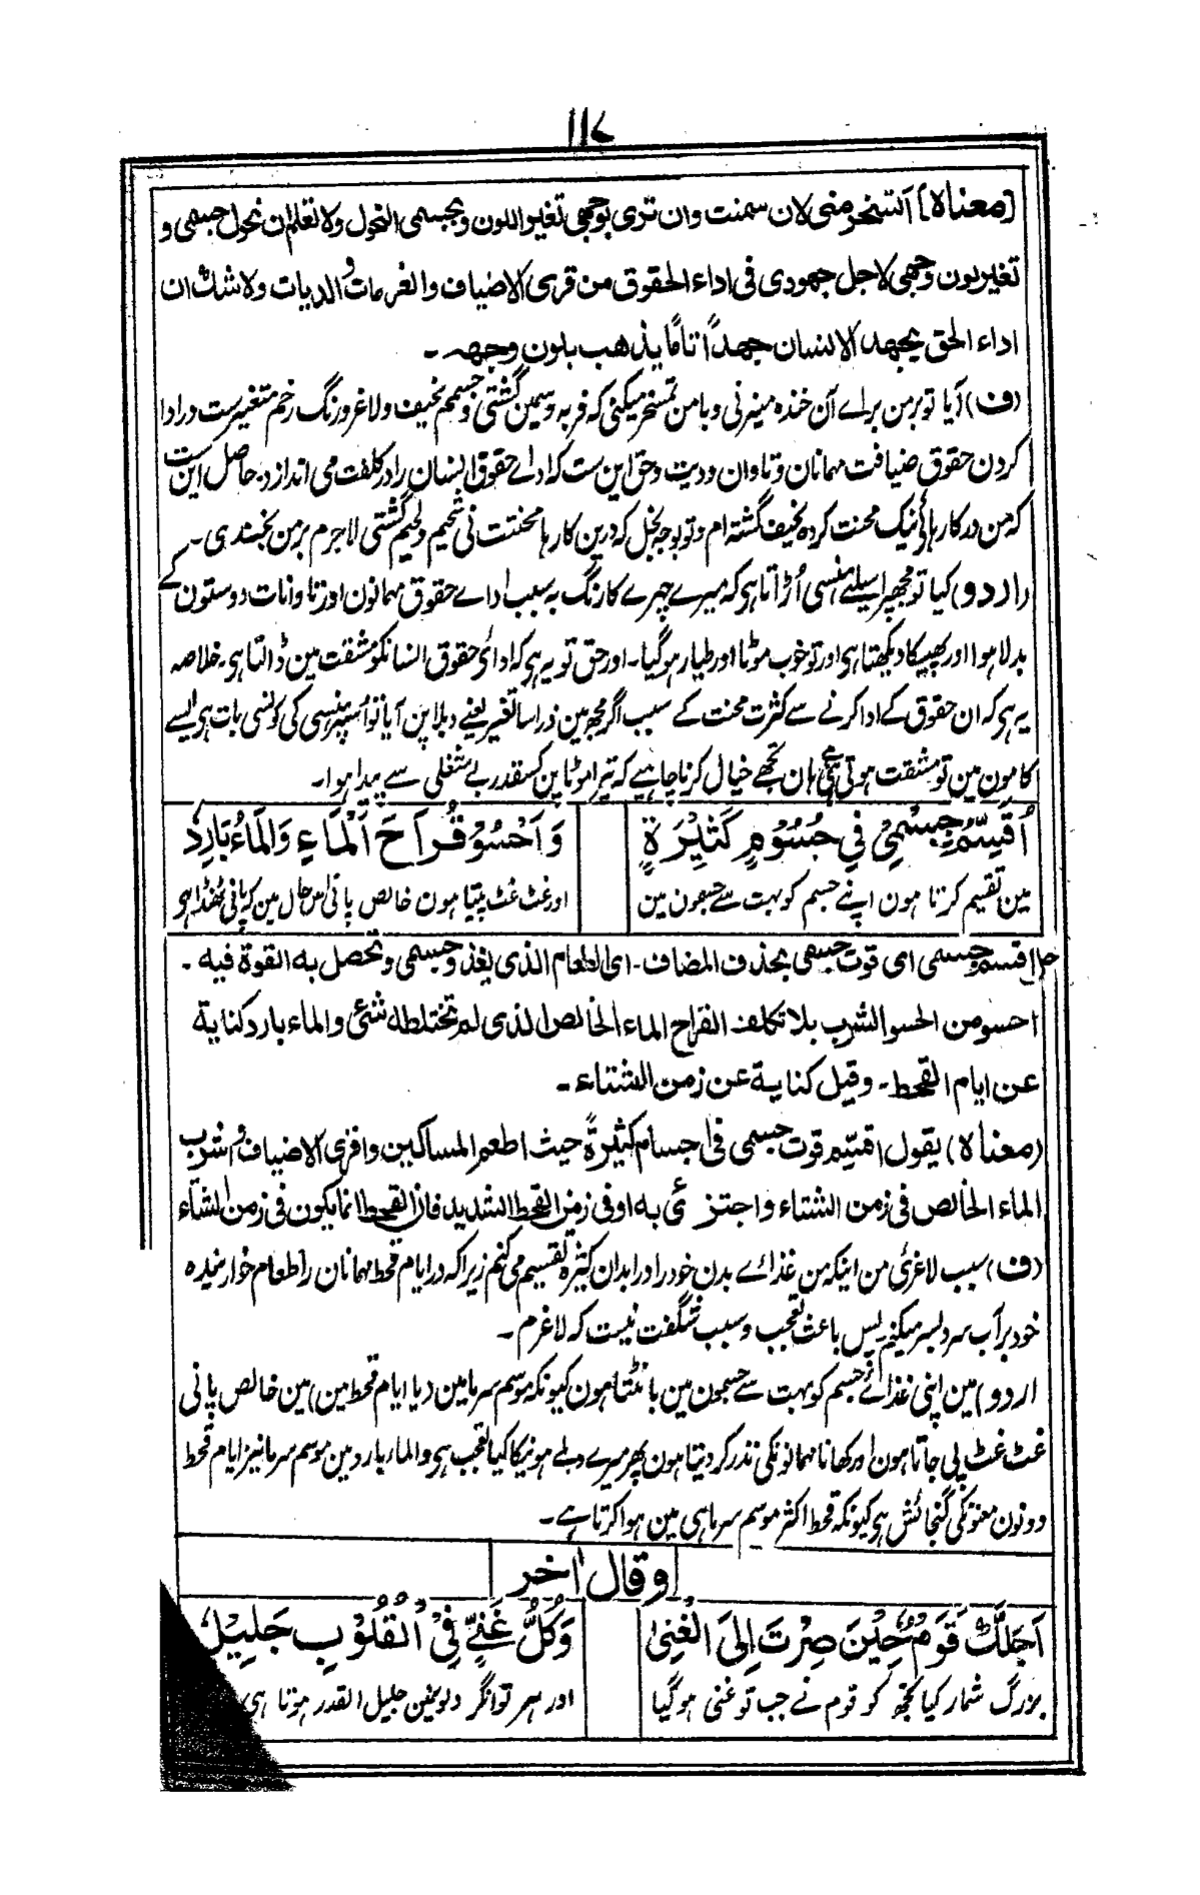 ۱۱۷
(معناه) اتسخر منی لان سمنت وان تری بوجهی تغیر اللون وبجسمی النحول ولا تعلم ان نحول جسمی و
تغیر لون وجهی لاجل جهودی فی اداء الحقوق من قری الاضیاف والغرمات والدیات ولا شک ان
اداء الحق یجهد الانسان جهداً تاما یذهب بلون وجهه۔
(ف) آیا تو بر من براے آن خنده میزنی و با من تمسخر میکنی که فربه و سمین گشتی و جسمم نحیف و لاغر و رنگ رخم متغیرست در ادا
کردن حقوق ضیافت مهمانان و تاوان و دیت و حق این ست که اداے حقوق انسان را در کلفت می اندازد۔ حاصل این ست
که من در کارهائے نیک محنت کرده نحیف گشته ام و تو بوجه بخل که درین کارها محنتت نی شحیم و لحیم گشتی لاجرم بر من بخندی۔
(اردو) کیا تو مجھپر اسیلئے ہنسی اُڑاتا ہی کہ میرے چہرے کا رنگ بہ سبب اداے حقوق مہمانون اور تاوانات دوستون کے
بدلا ہوا اور پھیکا دیکھتا ہی اور تو خوب موٹا اور طیار ہوگیا۔ اور حق تو یہ ہی کہ ادائ حقوق انسانکو مشقت مین ڈالتا ہی۔ خلاصہ
یہ ہی کہ ان حقوق کے ادا کرنے سے کثرت محنت کے سبب اگر مجھ مین ذرا سا تغیر یعنے دبلا پن آیا تو اسپر ہنسی کی کونسی بات ہی ایسے
کامون مین تو مشقت ہوتی ہی ہے ہان تجھے خیال کرنا چاہیے کہ تیرا موٹاپن کسقدر بے شغلی سے پیدا ہوا۔
اُقَسِّمُ جِسْمِیْ فِیْ جُسُوْمٍ کَثِیْرَةٍ وَاَحْسُوْ قُرَاحَ اَلْمَاءِ وَالْمَاءُ بَارِدُ
مین تقسیم کرتا ہون اپنے جسم کو بہت سے جسمون مین اور غٹ غٹ پیتا ہون خالص پانی اس حال مین کہ پانی ٹھنڈا ہو
حل اقسم جسمی ای قوت جسمی بحذف المضاف۔ ای الطعام الذی یغذو جسمی وتحصل به القوة فیه۔
احسو من الحسو الشرب بلا تکلف القراح الماء الخالص الذی لم تختلطه شئ والماء بارد کنایة
عن ایام القحط۔ وقیل کنایة عن زمن الشتاء۔
(معناه) یقول اقسم قوت جسمی فی اجسام کثیرةً حیث اطعم المساکین واقری الاضیاف و اشرب
الماء الخالص فی زمن الشتاء واجتزئ به او فی زمن القحط الشدید فان القحط انما یکون فی زمن الشتاء
(ف) سبب لاغرئ من اینکه من غذاے بدن خود را در ابدان کثیره تقسیم می کنم زیرا که در ایام قحط مهمانان را طعام خورانیده
خود بر آب سرد بسر میکنم پس باعث تعجب و سبب شگفت نیست که لاغرم۔
اردو) مین اپنی غذائے جسم کو بہت سے جسمون مین بانٹتا ہون کیونکہ موسم سرما مین (یا ایام قحط مین) مین خالص پانی
غٹ غٹ پی جاتا ہون اور کھانا مہمانونکی نذر کر دیتا ہون پھر میرے دبلے ہونیکا کیا تعجب ہی والماء بارد مین موسم سرما نیز ایام قحط
دونون معنونکی گنجائش ہی کیونکہ قحط اکثر موسم سرما ہی مین ہوا کرتا ہے۔
وقال اٰخر
اَجَلَّکَ قَوْمٌ حِیْنَ صِرْتَ اِلَی الْغِنیٰ وَکُلُّ غَنِیٍّ فِیْ الْقُلُوْبِ جَلِیْلُ
بزرگ شمار کیا تجھ کو قوم نے جب تو غنی ہوگیا اور ہر توانگر دلونمین جلیل القدر ہوتا ہی